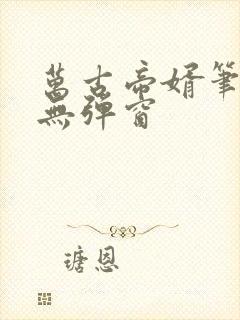 萬古帝婿筆
無彈窗
瑭恩